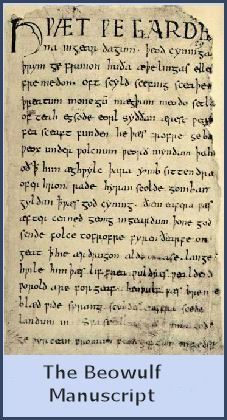 HǷÆT ǷE GARDE
na ingear dagum. þeod cyninga
þrym ge frunon huða æþelingas elle
fremedon. oft scyld scefing sceaþe
þreatum monegū mægþum meodo setla
of teah egsode eorl syððan ærest ƿear
fea sceaft funden he þæs frofre geba
ƿeox under ƿolcnum ƿeorð myndum þah
oð þ him æghƿylc þara ymb sittendra
ofer hron rade hyran scolde gomban
gyldan þ ƿæs god cyning. ðæm eafera ƿæs
æfter cenned geong ingeardum þone god
sende folce tofrofre fyren ðearfe on
geat þ hie ær drugon aldor ase. lange
hƿile him þæs lif frea ƿuldres ƿealdend
ƿorold are forgeaf. beoƿulf ƿæs breme
blæd ƿide sprang scyldes eafera scede
landum in. Sƿa sceal
ge ƿyrcean fromum feoh giftum
The Beowulf
Manuscript